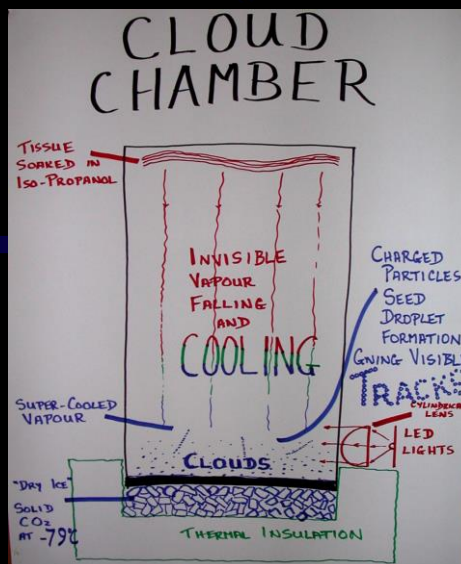 CLOUD
CHAMBER
TISSUE
SOAKED IN
ISO-PROPANOL
INVISIBLE
VAPOUR
FALLING
AND
COOLING
CHARGED
PARTICLES
SEED
DROPLET
FORMATION
GIVING VISIBLE
TRACKS
CYLINDRICAL
LENS
LED
LIGHTS
SUPER-COOLED
VAPOUR
CLOUDS
"DRY ICE"
SOLID
CO2
AT -79°C
THERMAL INSULATION